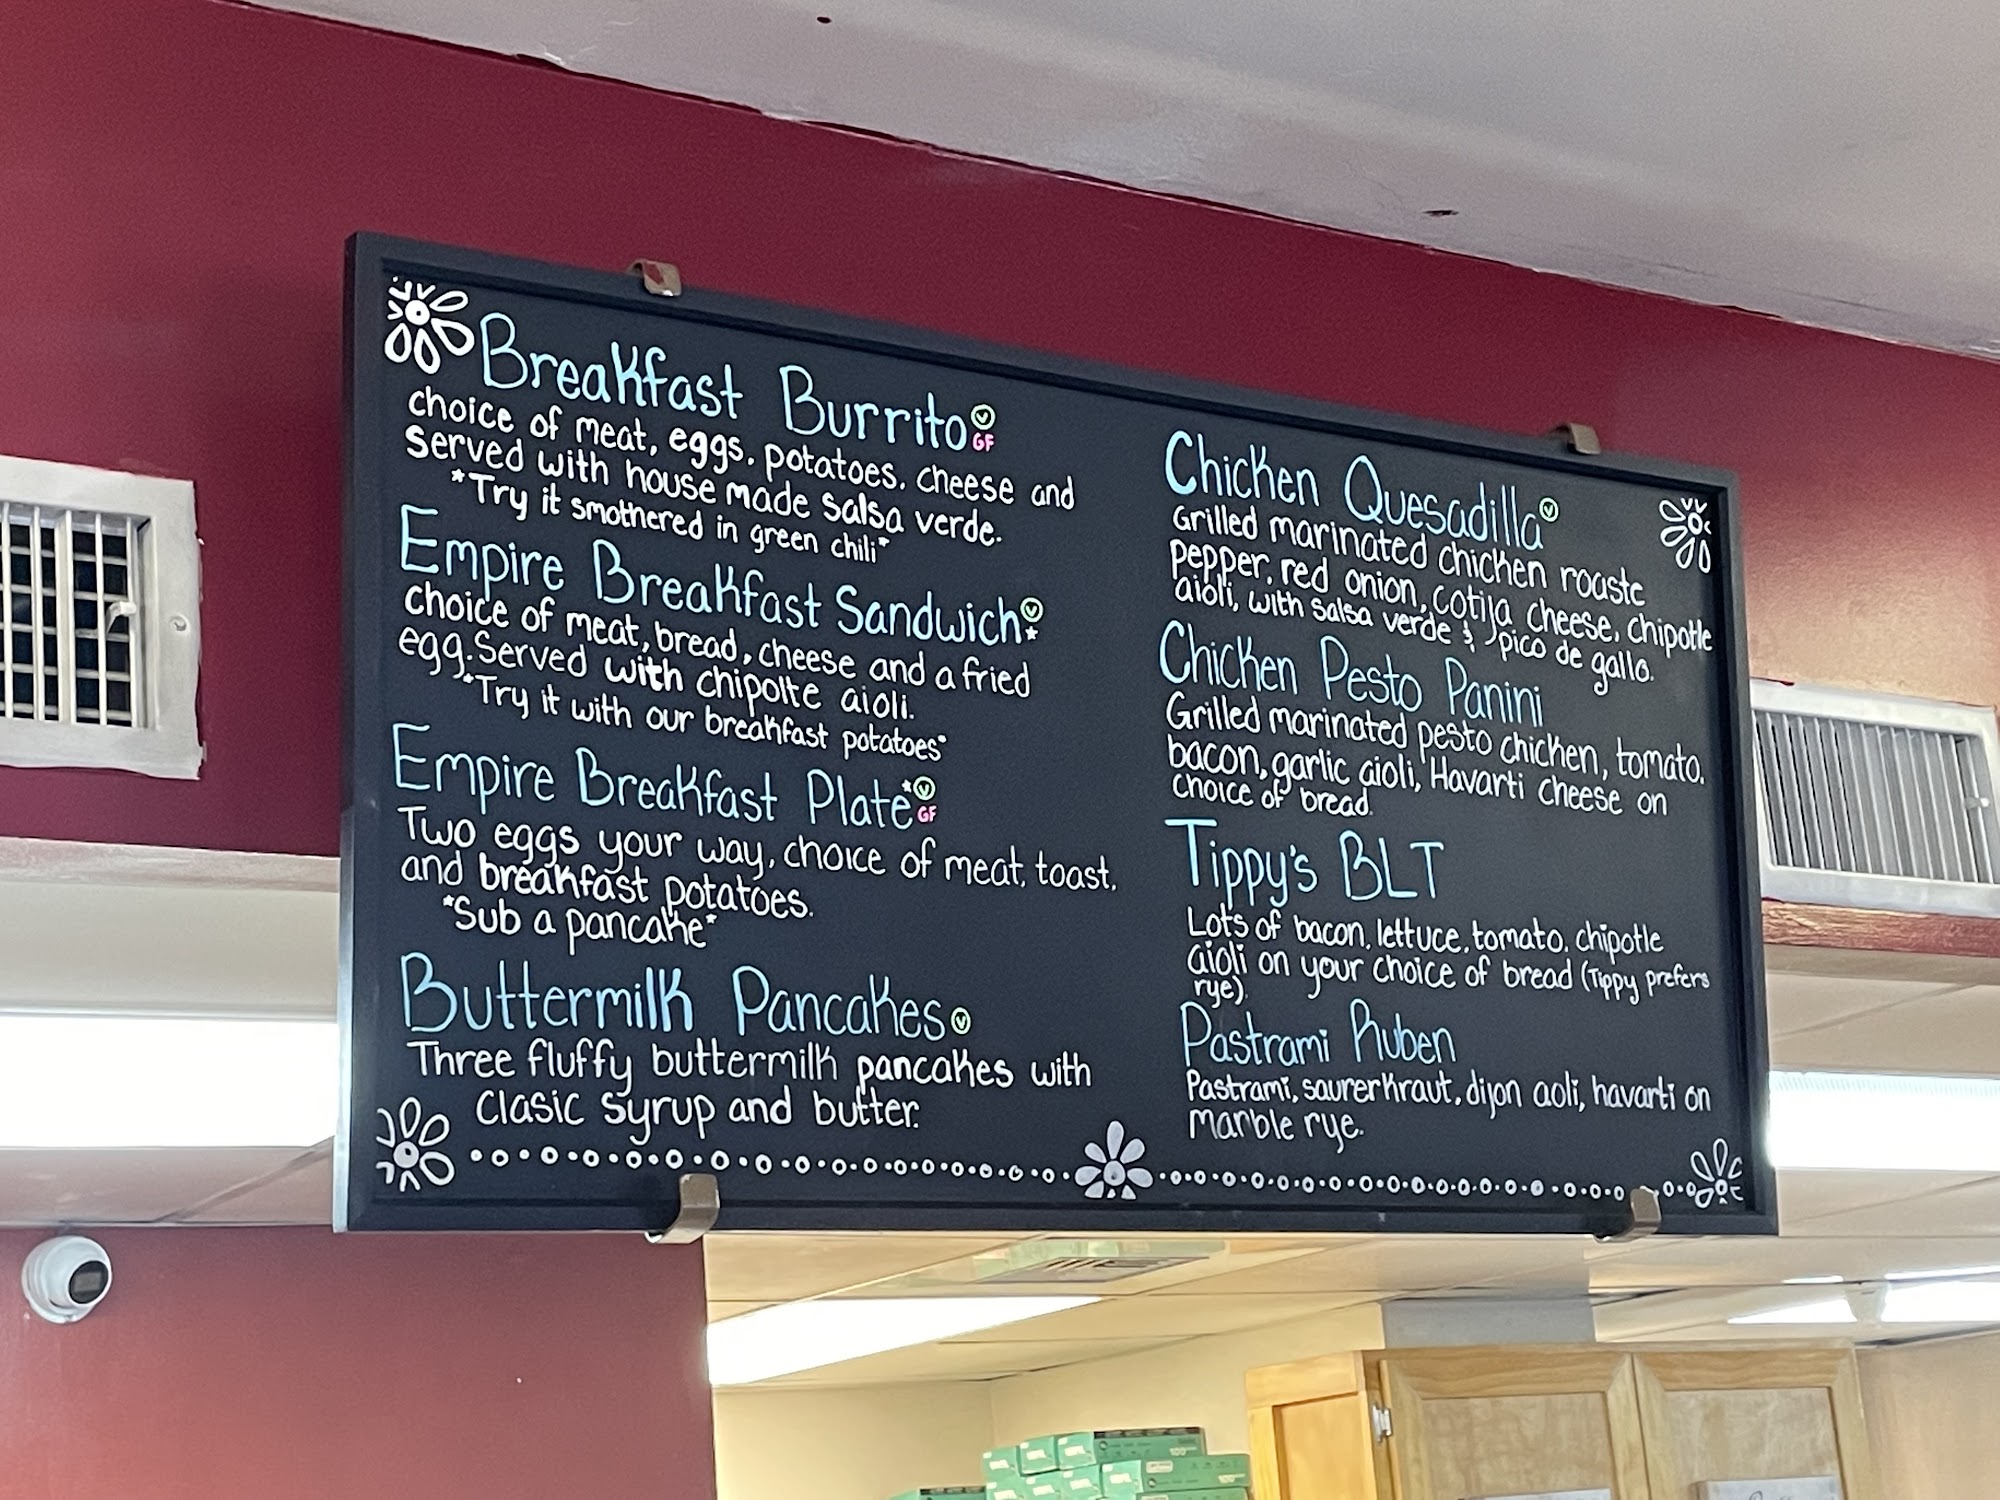 Breakfast Burrito V GF
choice of meat, eggs, potatoes, cheese and
Served with house made salsa verde.
*Try it smothered in green chili*
Empire Breakfast Sandwich V*
choice of meat, bread, cheese and a fried
egg. Served with chipolte aioli.
*Try it with our breakfast potatoes*
Empire Breakfast Plate* V GF
Two eggs your way, choice of meat, toast,
and breakfast potatoes.
*Sub a pancake*
Buttermilk Pancakes V
Three fluffy buttermilk pancakes with
Clasic syrup and butter.
Chicken Quesadilla V
Grilled marinated chicken roaste
pepper, red onion, cotija cheese, chipotle
aioli, with salsa verde & pico de gallo.
Chicken Pesto Panini
Grilled marinated pesto chicken, tomato,
bacon, garlic aioli, Havarti cheese on
choice of bread.
Tippy's BLT
Lots of bacon, lettuce, tomato, chipotle
aioli on your choice of bread (Tippy prefers
rye).
Pastrami Ruben
Pastrami, saurerkraut, dijon aoli, havarti on
marble rye.
100
100